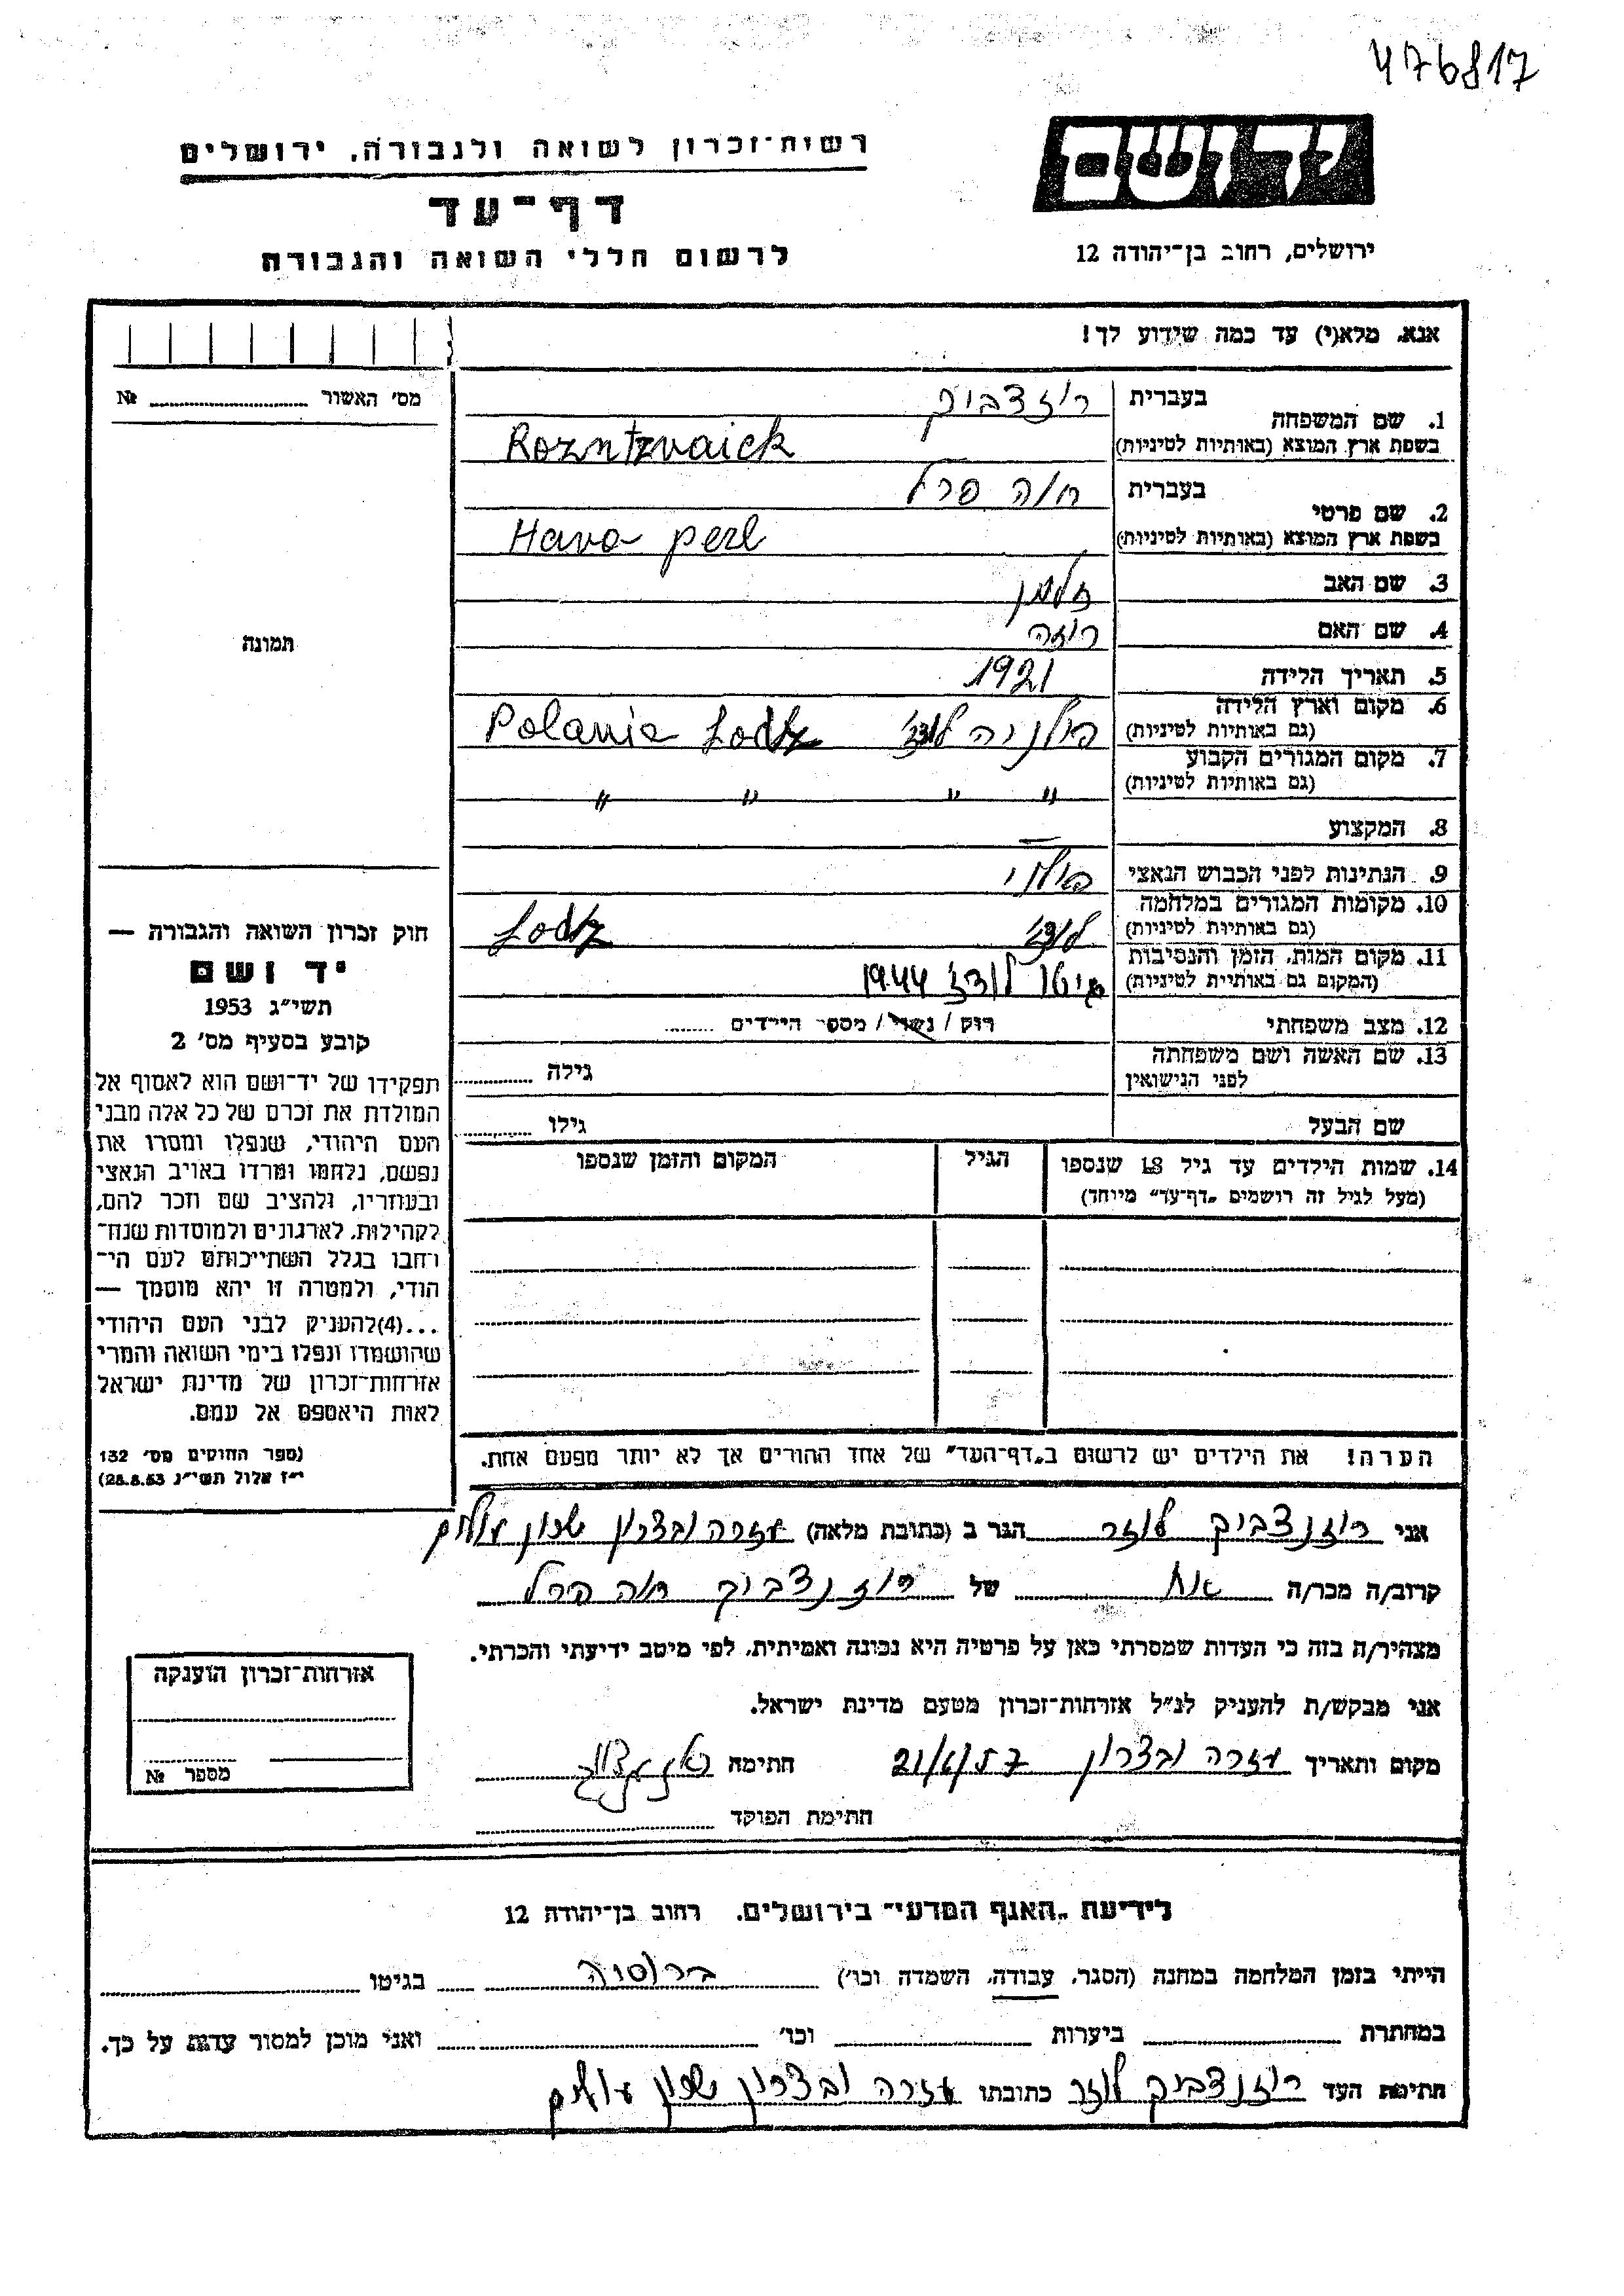 476817
יד ושם
רשות־זכרון לשואה ולגבורה, ירושלים
דף־עד
לרשום חללי השואה והגבורה
ירושלים, רחוב בן־יהודה 12
אנא, מלא(י) עד כמה שידוע לך!
מס' האשור № 
1. שם המשפחה בעברית רוזצביק
בשפת ארץ המוצא (באותיות לטיניות) Rozntzvaick
2. שם פרטי בעברית חוה פרל
בשפת ארץ המוצא (באותיות לטיניות) Hava perl
3. שם האב זלמן
4. שם האם רוזה
5. תאריך הלידה 1921
6. מקום וארץ הלידה (גם באותיות לטיניות) פולניה לודז' Polania Lodz
7. מקום המגורים הקבוע (גם באותיות לטיניות) " " " "
8. המקצוע —
9. הנתינות לפני הכבוש הנאצי פולני
10. מקומות המגורים במלחמה (גם באותיות לטיניות) לודז' Lodz
11. מקום המות, הזמן והנסיבות (המקום גם באותיית לטיניות) גיטו לודז 1944
12. מצב משפחתי רוק / נשוי / מספר הילדים
13. שם האשה ושם משפחתה לפני הנישואין גילה
שם הבעל גילו
14. שמות הילדים עד גיל 18 שנספו (מעל לגיל זה רושמים „דף־עד" מיוחד) הגיל המקום והזמן שנספו
הערה! את הילדים יש לרשום ב„דף־העד" של אחד ההורים אך לא יותר מפעם אחת.
תמונה
חוק זכרון השואה והגבורה —
יד ושם
תשי"ג 1953
קובע בסעיף מס' 2
תפקידו של יד־ושם הוא לאסוף אל
המולדת את זכרם של כל אלה מבני
העם היהודי, שנפלו ומסרו את
נפשם, נלחמו ומרדו באויב הנאצי
ובעוזריו, ולהציב שם וזכר להם,
לקהילות, לארגונים ולמוסדות שנח־
רחבו בגלל השתייכותם לעם הי־
הודי, ולמטרה זו יהא מוסמך —
...(4)להעניק לבני העם היהודי
שהושמדו ונפלו בימי השואה והמרי
אזרחות־זכרון של מדינת ישראל
לאות היאספם אל עמם.
(ספר החוקים מס' 132
י"ז אלול תשי"ג 28.8.53)
אני רוזנצביק לוזר הגר ב (כתובת מלאה) עזרה ובצרון שכון עולים
קרוב/ה מכר/ה אח של רוזנצביק חוה פרל
מצהיר/ה בזה כי העדות שמסרתי כאן על פרטיה היא נכונה ואמיתית, לפי מיטב ידיעתי והכרתי.
אני מבקש/ת להעניק לנ"ל אזרחות־זכרון מטעם מדינת ישראל.
מקום ותאריך עזרה ובצרון 21/6/57 חתימה
חתימת הפוקד
אזרחות־זכרון הוענקה
מספר №
לידיעת „האגף המדעי" בירושלים, רחוב בן־יהודה 12
הייתי בזמן המלחמה במחנה (הסגר, עבודה, השמדה וכו') ברוסיה בגיטו
במחתרת ביערות וכו' ואני מוכן למסור עדות על כך.
חתימת העד רוזנצביק לוזר כתובתו עזרה ובצרון שכון עולים